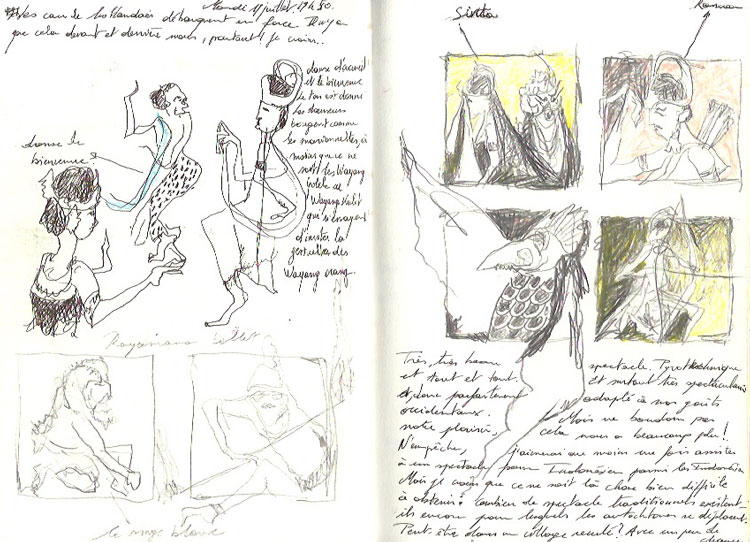 Mardi 11 juillet 19 h 50.
cars de hollandais débarquent en force. Il n'y a
que cela devant et derrière nous, pourtant ! Je crois...
danse d'accueil
et de bienvenue
le ton est donné
les danseurs
bougent comme
les marionnettes, à
moins que ce ne
soit les Wayang
Golek et
Wayang Kulit
qui s'essayent
d'imiter la
gestuelle des
Wayang orang.
danse de
bienvenue
Ramayana ballet
le singe blanc
Sinta
Très, très beau spectacle. Pyrotechnique
et tout et tout. Et surtout très spectaculaire
et, donc parfaitement adapté à nos goûts
occidentaux. Mais ne boudons pas
notre plaisir, cela nous a beaucoup plu !
N'empêche, j'aimerai au moins une fois assister
à un spectacle pour Indonésien parmi les Indonésiens
Mais je crois que ce ne soit là chose bien difficile
à obtenir : combien de spectacle traditionnels existent-
ils encore pour lesquels les autochtones se déplacent.
Peut-être dans un village reculé ? Avec un peu de
chance